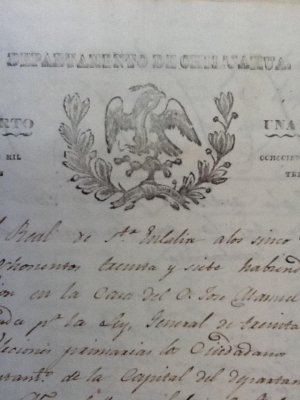 DEPARTAMENTO DE CHIHUAHUA.
RTO
UNA
MIL
OCHOCIEN
S
TRE
Real de Sta. Eulalia a los cinco
ochocientos treinta y siete habiend
ion en la Casa del C. José Manue
da pr. la Ley General de
lecciones primarias los Ciudadano
de la Capital del departam